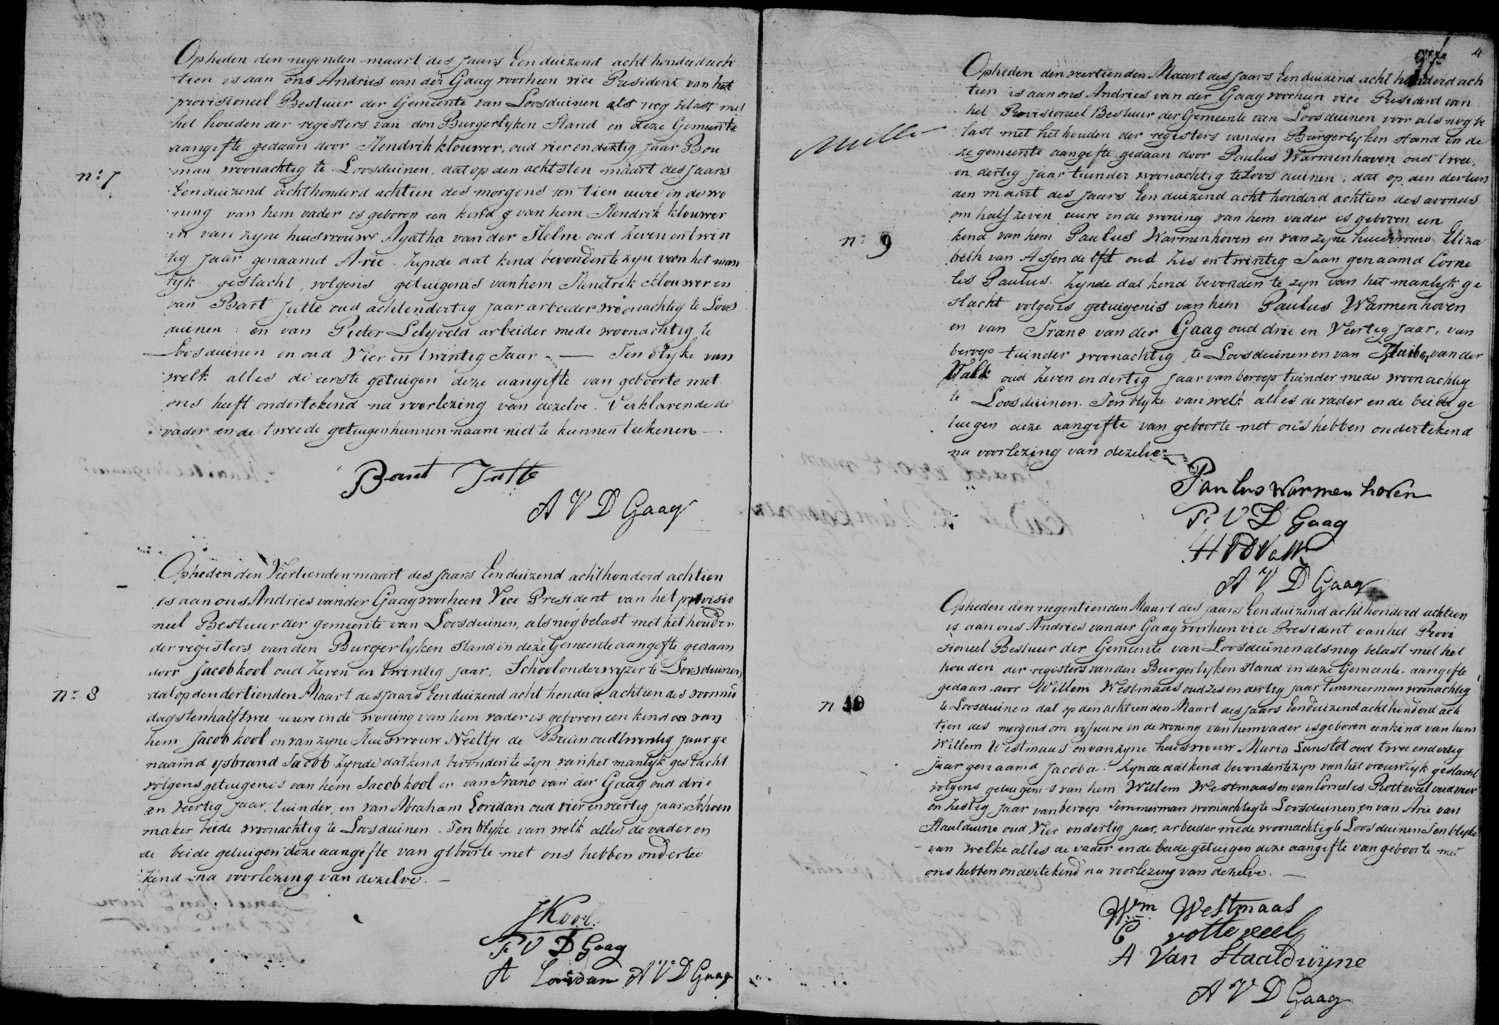 Opheden den negenden maart des Jaars Een duizend acht honderd ach
tien is aan ons Andries van der Gaag voorheen vice President van het
provisioneel Bestuur der Gemeente van Loosduinen als nog belast met
het houden der registers van den Burgerlyken Stand en deze Gemeente
aangifte gedaan door Hendrik klouwer, oud vier en dertig Jaar Bou
man woonachtig te Loosduinen, dat op den achtsten maart des Jaars
n:o 7
Eenduizend achthonderd achtien des morgens ten tien uure in de wo
ning van hem vader is geboren een kind van hem Hendrik klouwer
en van zyne huisvrouw Agatha van der Helm oud zeven en twin
tig Jaar genaamd Arie. zynde dat kind bevonden te zyn van het man
lyk geslacht, volgens getuigenis van hem Hendrik klouwer en
van Bart Jutte oud achtendertig Jaar arbeider woonachtig te Loos
duinen en van Pieter Lelyveld arbeider mede woonachtig te
Loosduinen en oud Vier en twintig Jaar. — Ten blyke van
welk alles de eerste getuigen deze aangifte van geboorte met
ons heeft ondertekend na voorlezing van dezelve. Verklarende de
vader en de tweede getuigen hunnen naam niet te kunnen teekenen.
Baart Jutte
A V D Gaag
Opheden den Veertienden maart des Jaars Eenduizend achthonderd achtien
is aan ons Andries van der Gaag voorheen Vice President van het provisio
neel Bestuur der gemeente van Loosduinen, als nog belast met het houden
der registers van den Burgerlyken Stand in deze Gemeente aangifte gedaan
door Jacob kool oud Zeven en twintig Jaar, Schoolonderwyzer te Loosduinen,
n:o 8
dat op den dertienden Maart des Jaars Eenduizend acht honderd achtien des voormid
dags ten half twee uure in de woning van hem vader is geboren een kind van
hem Jacob kool en van zyne Huisvrouw Neeltje de Bruin oud twintig Jaar ge
naamd ysbrand Jacob zynde dat kind bevonden te zyn van het manlyk geslacht
volgens getuigenis van hem Jacob kool en van Frans van der Gaag oud drie
en veertig Jaar, tuinder, en van Abraham Loridan oud vier en veertig Jaar Schoen
maker beide woonachtig te Loosduinen. Ten blyke van welk alles de vader en
de beide getuigen deze aangifte van geboorte met ons hebben onderte
kend na voorlezing van dezelve. —
J Kool
F: V D Gaag
A Loridan A V D Gaag
4
Opheden den veertienden Maart des Jaars Een duizend acht honderd ach
tien is aan ons Andries van der Gaag voorheen vice President van
het Provisioneel Bestuur der Gemeente van Loosduinen voor als nog be
last met het houden der registers van den Burgerlyken stand in de
ze gemeente aangifte gedaan door Paulus Warmenhoven oud twee
en dertig Jaar tuinder woonachtig te Loosduinen, dat op den dertien
den maart des Jaars Een duizend acht honderd achtien des avonds
om half zeven uure in de woning van hem vader is geboren een
n:o 9
kind van hem Paulus Warmenhoven en van zyne huisvrouw Eliza
beth van oud Zes en twintig Jaar genaamd Corne
lis Paulus. Zynde dat kind bevonden te zyn van het manlyk ge
slacht volgens getuigenis van hem Paulus Warmenhoven
en van Frans van der Gaag oud drie en Veertig Jaar, van
beroep tuinder woonachtig te Loosduinen en van Huibert van der
Valk oud Zeven en dertig Jaar van beroep tuinder mede woonachtig
te Loosduinen. Ten blyke van welk alles de vader en de beide ge
tuigen deze aangifte van geboorte met ons hebben ondertekend
na voorlezing van dezelve.
Paulus Warmenhoven
F: V D Gaag
H V D Valk
A V D Gaag
Opheden den negentienden Maart des Jaars Eenduizend achthonderd achtien
is aan ons Andries van der Gaag voorheen vice President van het Provi
sioneel Bestuur der Gemeente van Loosduinen als nog belast met het
houden der registers van den Burgerlyken stand in deze Gemeente aangifte
gedaan door Willem Westmaas oud zes en dertig Jaar Timmerman woonachtig
n:o 10
te Loosduinen dat op den achttienden Maart des Jaars Eenduizend achthonderd ach
tien des morgens om vyf uure in de woning van hem vader is geboren een kind van hem
Willem Westmaas en van zyne huisvrouw Maria Lanstel oud twee en dertig
Jaar genaamd Jacoba. Zynde dat kind bevonden te zyn van het vrouwelyk geslacht
volgens getuigenis van hem Willem Westmaas en van Cornelis Rotteveel oud vier
en zestig Jaar van beroep Timmerman woonachtig te Loosduinen en van Arie van
Staalduine oud Vier en dertig Jaar, arbeider mede woonachtig te Loosduinen Ten blyke
van welke alles de vader en de beide getuigen deze aangifte van geboorte met
ons hebben ondertekend na voorlezing van dezelve. —
Wm Westmaas
C rotteveel
A Van Staalduyne
A V D Gaag